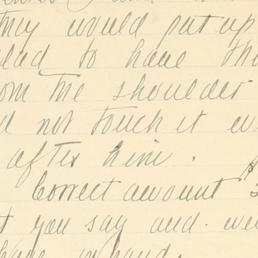 they would put up
glad to have th
om the shoulder
d not touch it
after him.
Correct amount $
t you say and we
have in hand.